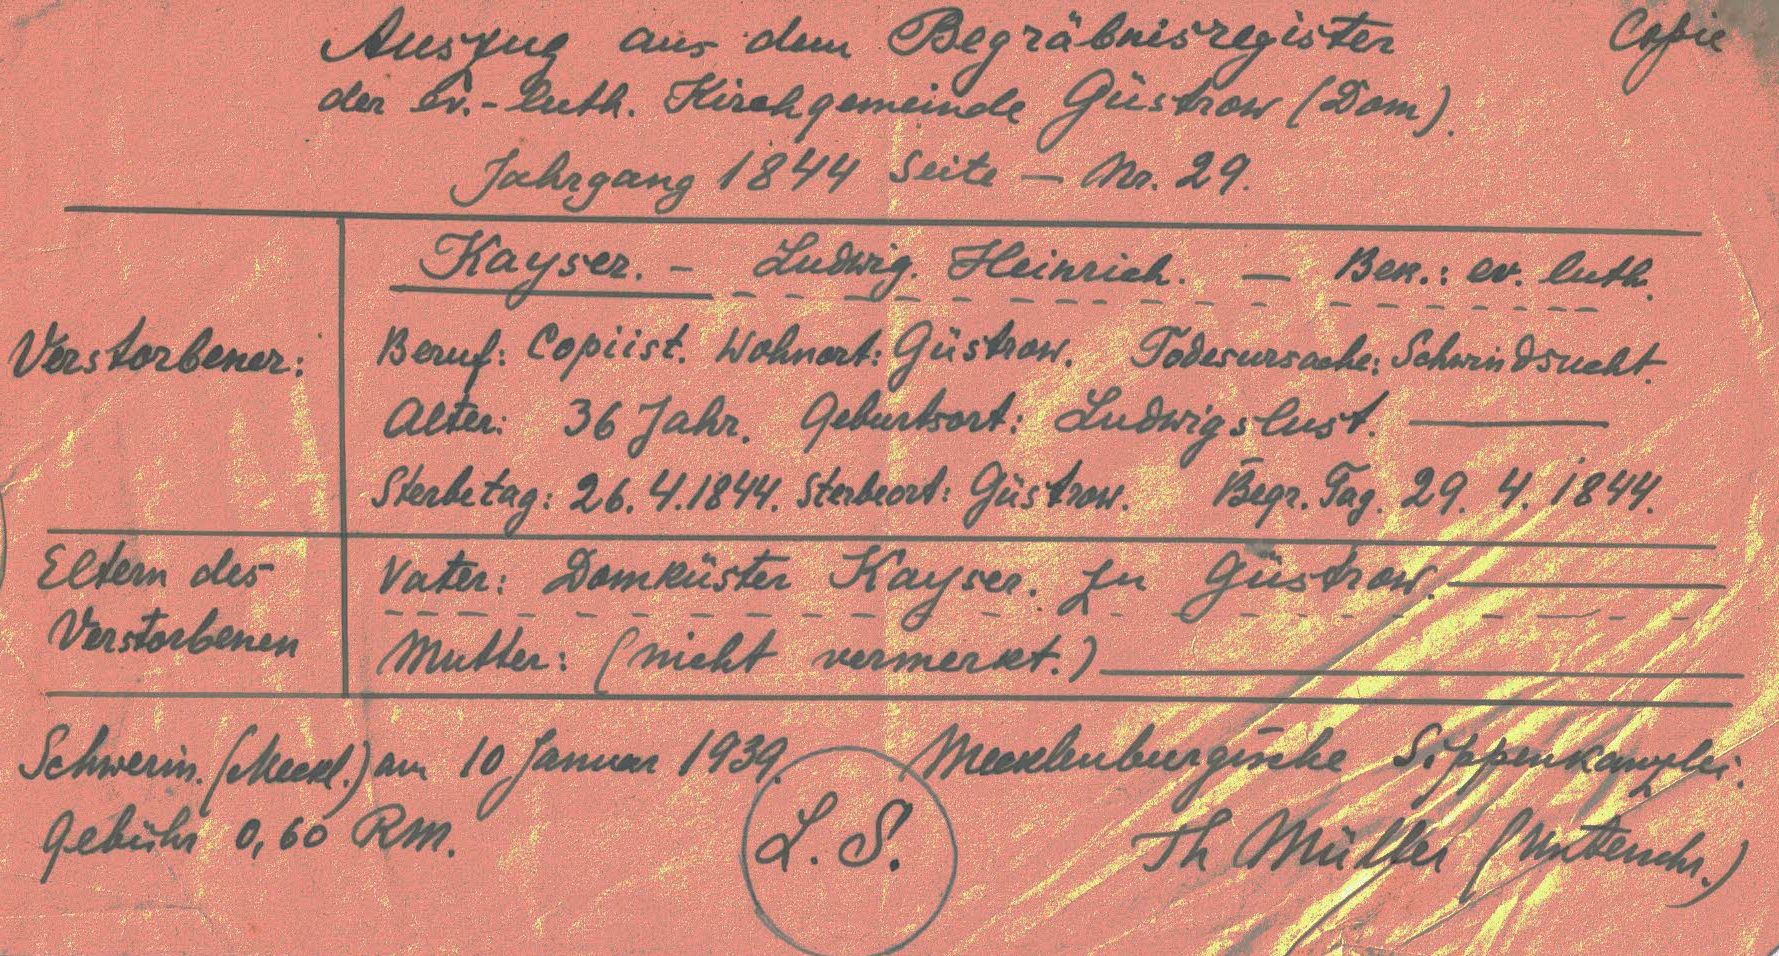 Copie
Auszug aus dem Begräbnisregister
der ev.-luth. Kirchgemeinde Güstrow (Dom).
Jahrgang 1844 Seite — Nr. 29.
Kayser. - Ludwig. Heinrich. — Bek.: ev. luth.
Verstorbener:
Beruf: Copiist. Wohnort: Güstrow. Todesursache: Schwindsucht.
Alter: 36 Jahr. Geburtsort: Ludwigslust. —
Sterbetag: 26.4.1844. Sterbeort: Güstrow. Begr. Tag. 29. 4. 1844.
Eltern des
Verstorbenen
Vater: Domküster Kayser. zu Güstrow. —
Mutter: (nicht vermerkt.) —
Schwerin. (Meckl.) am 10 Januar 1939. Mecklenburgische Sippenkanzlei.
Gebühr 0,60 RM.
L. S.
Th Müller (Unterschr.)